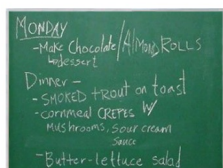 MONDAY
- Make Chocolate / Almond ROLLS
↳ dessert
Dinner -
- SMOKED trout on toast
- cornmeal CREPES W/
Mushrooms, sour cream
sauce
- Butter-lettuce salad